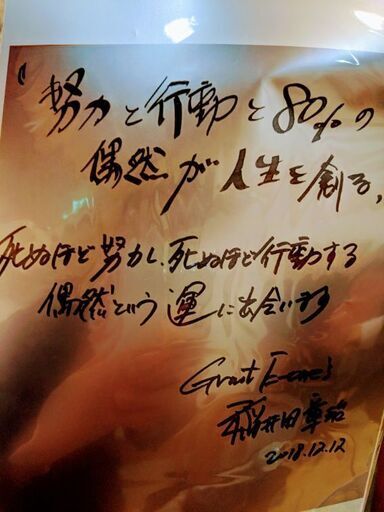 "努力と行動と80%の
偶然が人生を創る,
死ぬほど努力し、死ぬほど行動する
偶然という運に出会います
Grant
2018.12.12